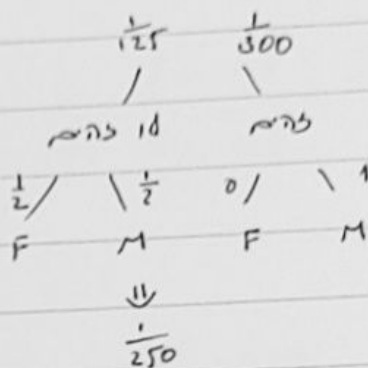 1/125 1/300
לא זהים זהים
1/2 1/2 0 1
F M F M
⇓
1/250